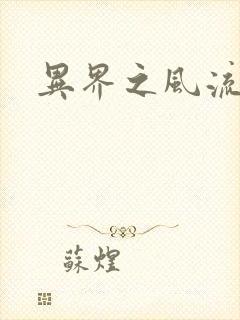 異界之風流
蘇煌